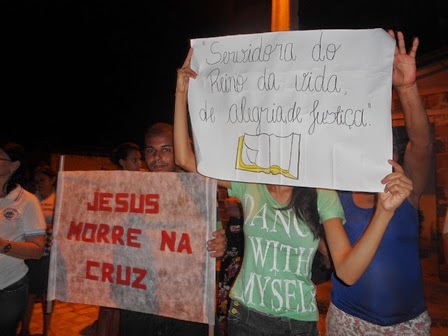 "Servidora do
Reino da vida,
de alegria, de Justiça"
JESUS
MORRE NA
CRUZ
DANCE
WITH
MYSELF